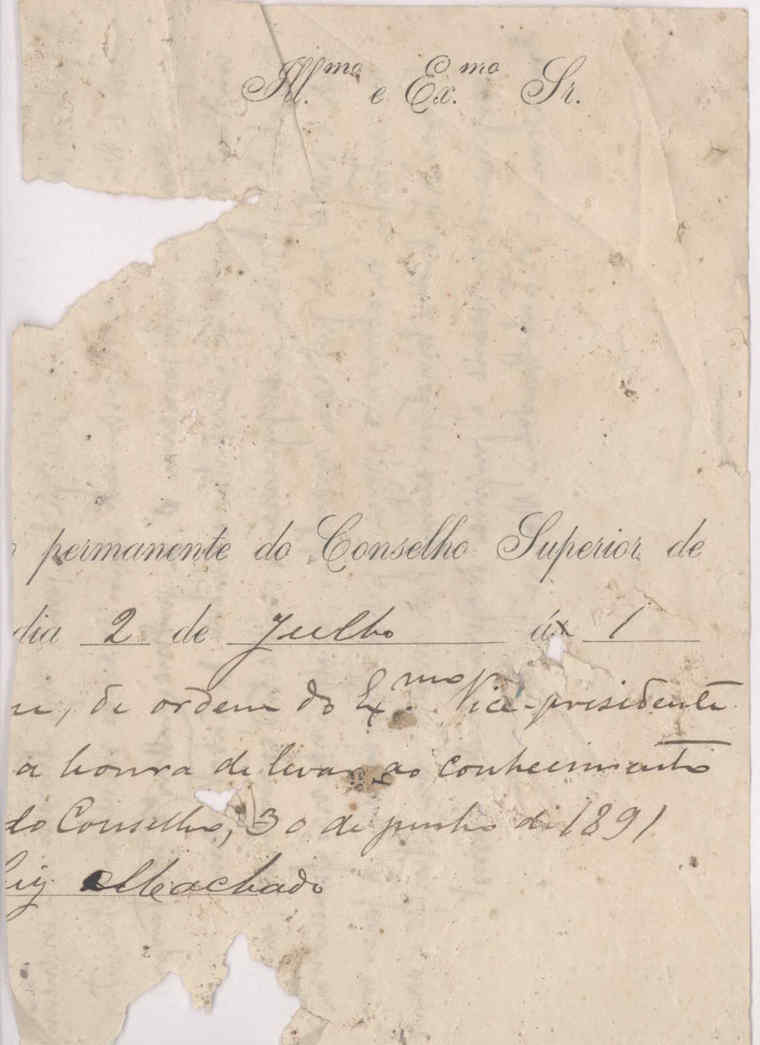 Ill.mo e Ex.mo Sr.
permanente do Conselho Superior de
dia 2 de Julho ás 1
de ordem do Ex.mo Vice-presidente
a honra de levar ao conhecimento
do Conselho, 30 de junho de 1891
Machado